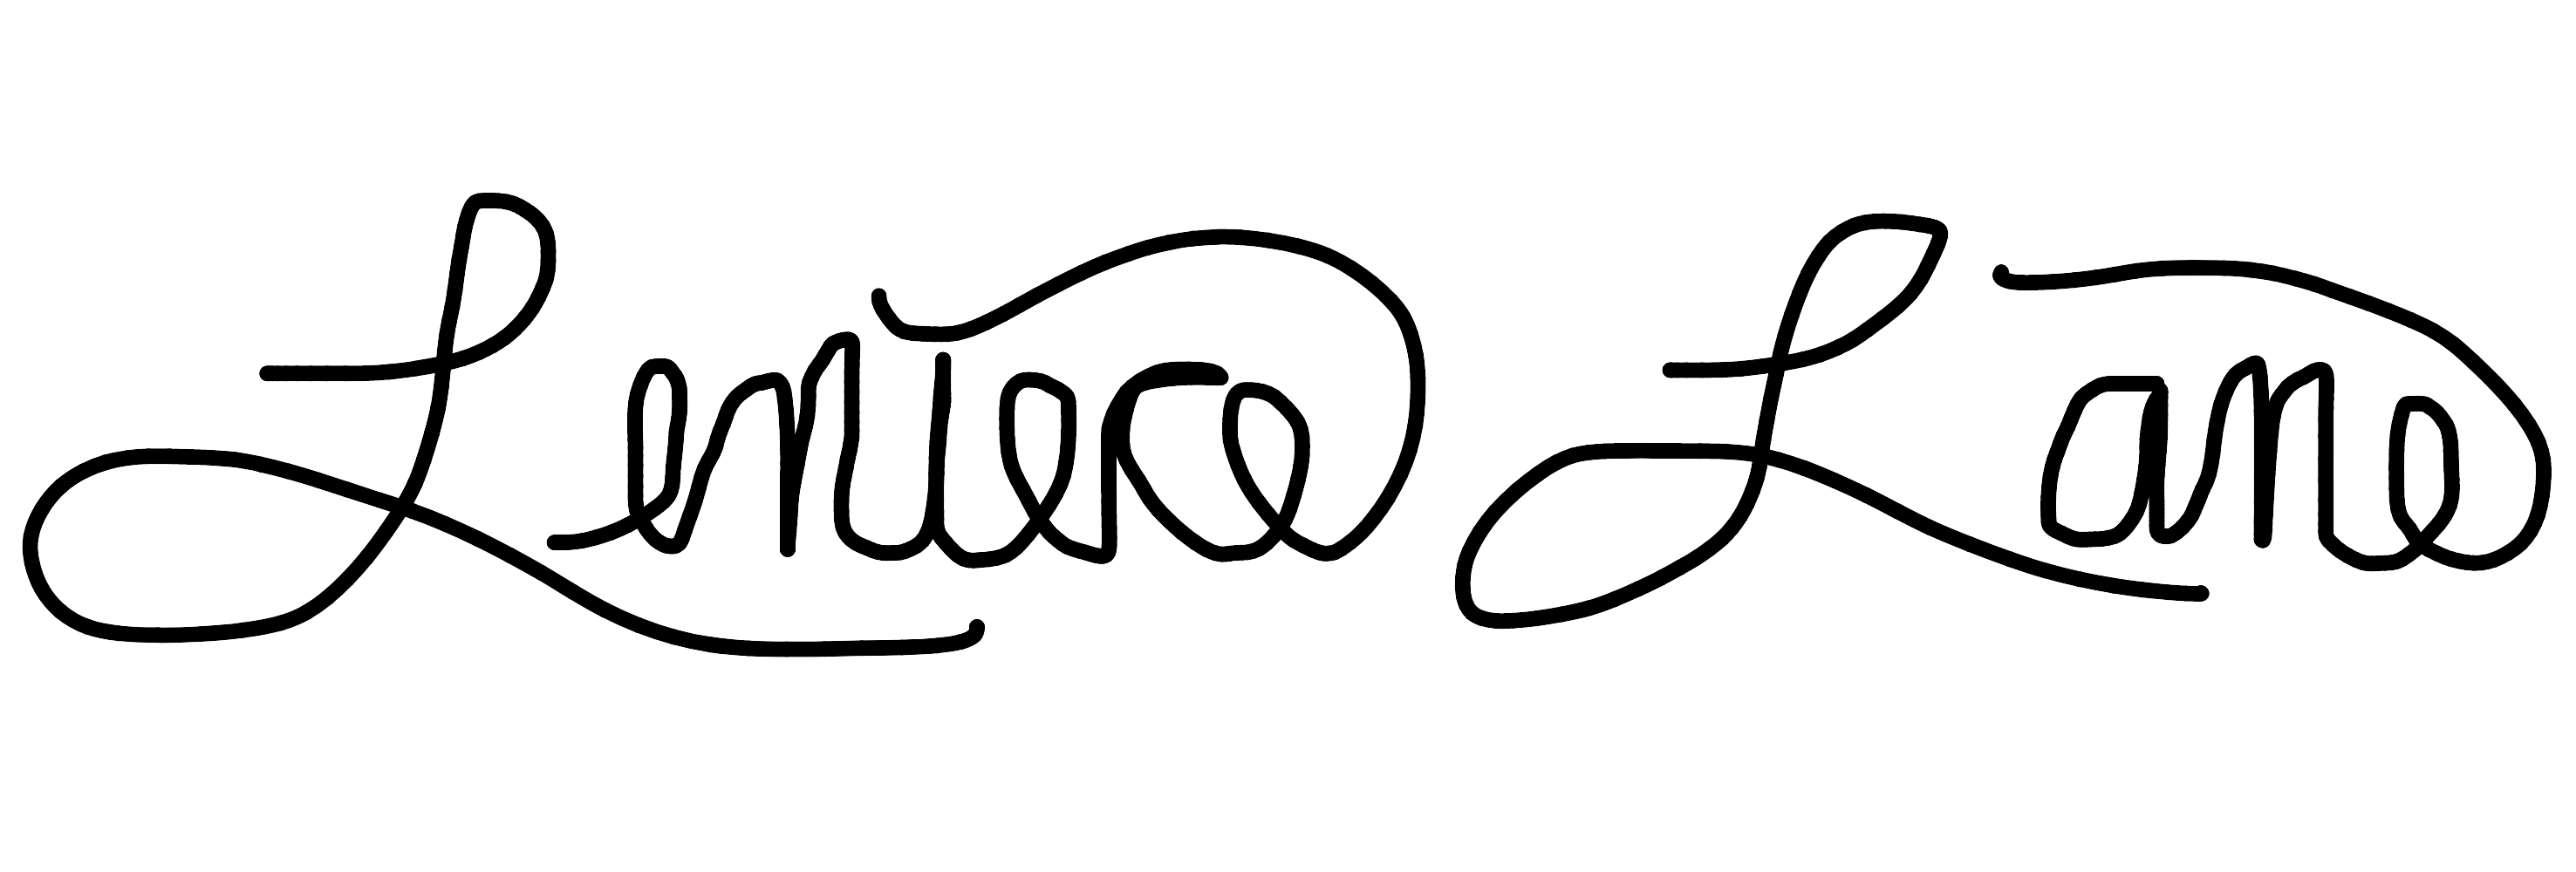 Leniece Lane